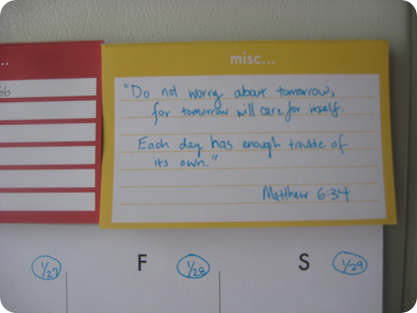 misc...
"Do not worry about tomorrow,
for tomorrow will care for itself.
Each day has enough trouble of
its own."
Matthew 6:34
1/27
F
1/28
S
1/29